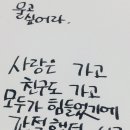 울고
싶어라.
사랑은 가고
친구도 가고
모두가 힘들었기에